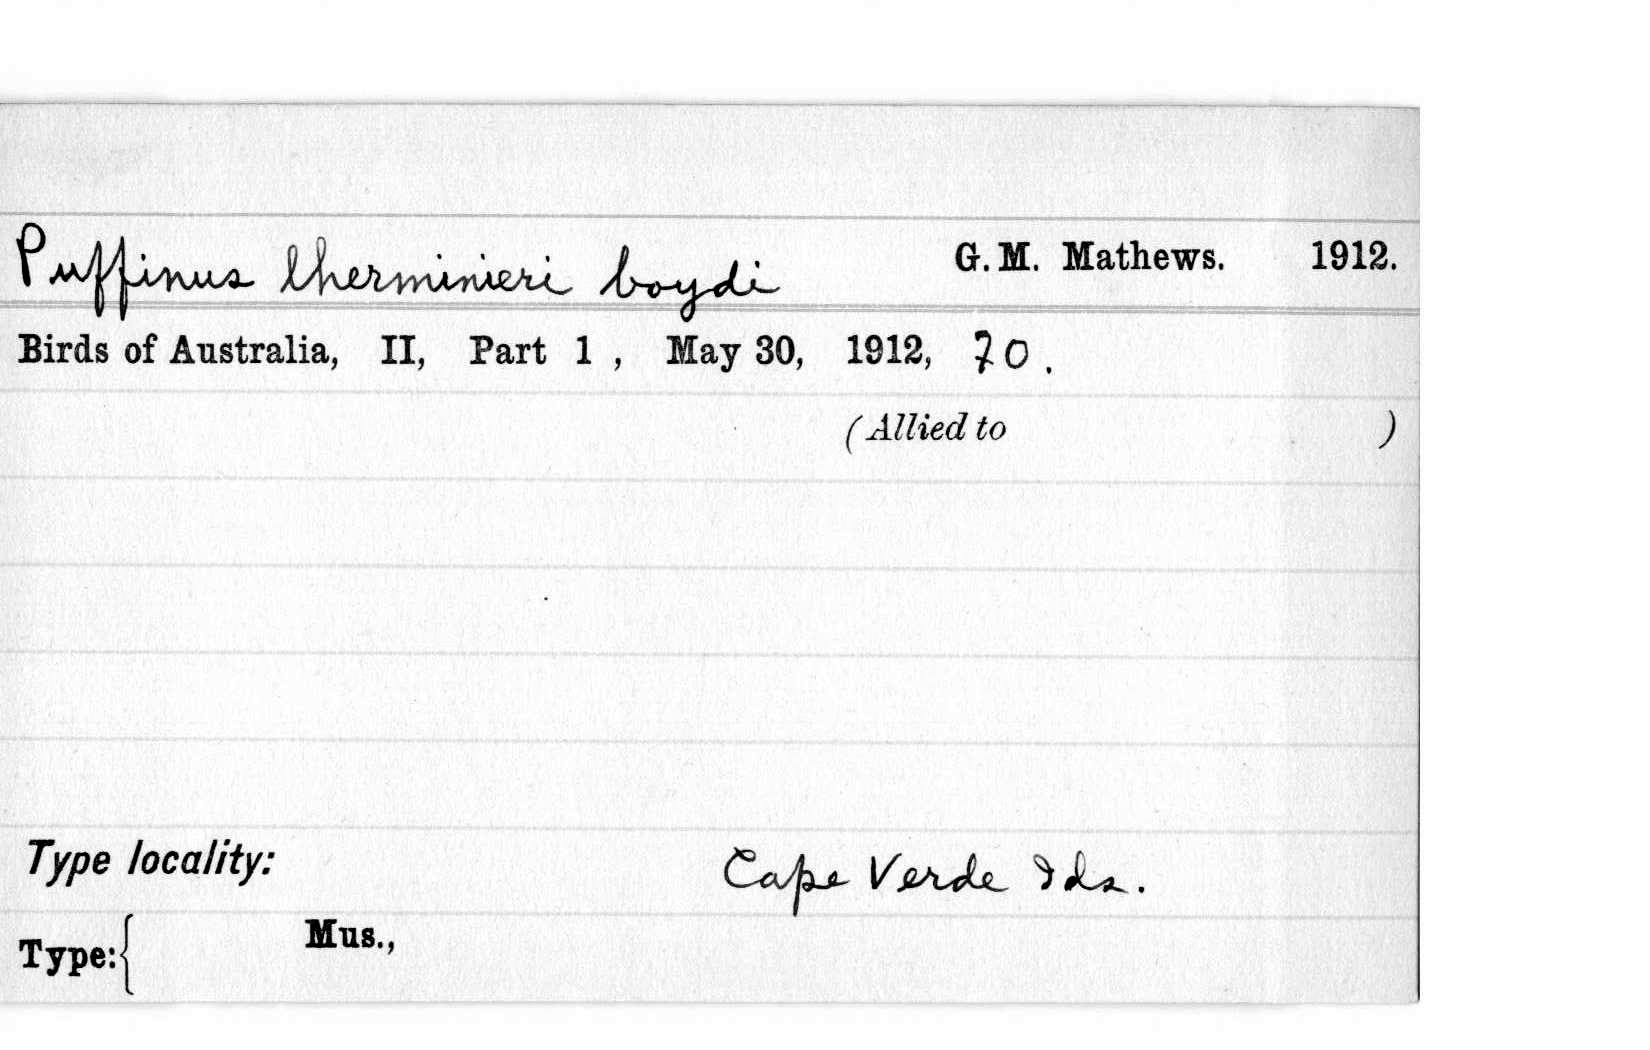 Puffinus lherminieri boydi G. M. Mathews. 1912.
Birds of Australia, II, Part 1 , May 30, 1912, 70 .
(Allied to )
Type locality: Cape Verde Ids.
Type:{ Mus.,